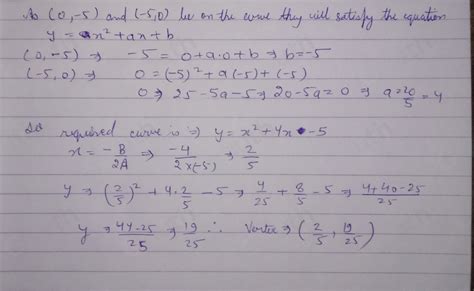 As (0,-5) and (-5,0) lie on the curve they will satisfy the equation
y = x² + ax + b
(0,-5) ⇒ -5 = 0 + a.0 + b ⇒ b = -5
(-5,0) ⇒ 0 = (-5)² + a(-5) + (-5)
0 ⇒ 25 - 5a - 5 ⇒ 20 - 5a = 0 ⇒ a = 20/5 = 4
So required curve is ⇒ y = x² + 4x - 5
x = -B/2A ⇒ -4/2x(-5) ⇒ 2/5
y ⇒ (2/5)² + 4.2/5 - 5 ⇒ 4/25 + 8/5 - 5 ⇒ 4+40-25/25
y ⇒ 44-25/25 ⇒ 19/25 ∴ Vertex ⇒ (2/5, 19/25)